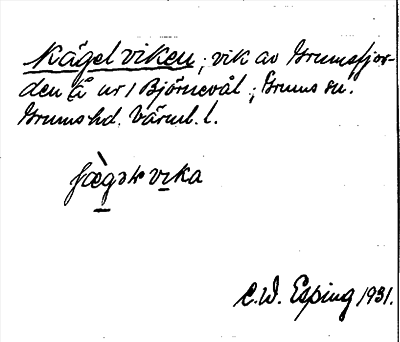 Kägelviken, vik av Grumsfjor-
den å nr 1 Björnevål, Grums sn.
Grums hd. Värml. l.
C.W. Esping 1931.